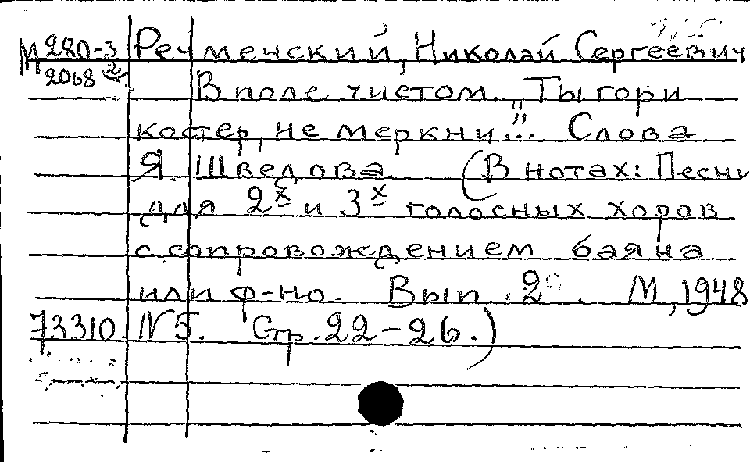 М 280-3 Речменский, Николай Сергеевич
2068 В поле чистом „Ты гори
костер, не меркни"... Слова
Я. Шведова (В нотах: Песни
для 2х и 3х голосных хоров
с сопровождением баяна
или ф-но. Вып. 2 . М, 1948
73310 N5. Стр. 22-26.)